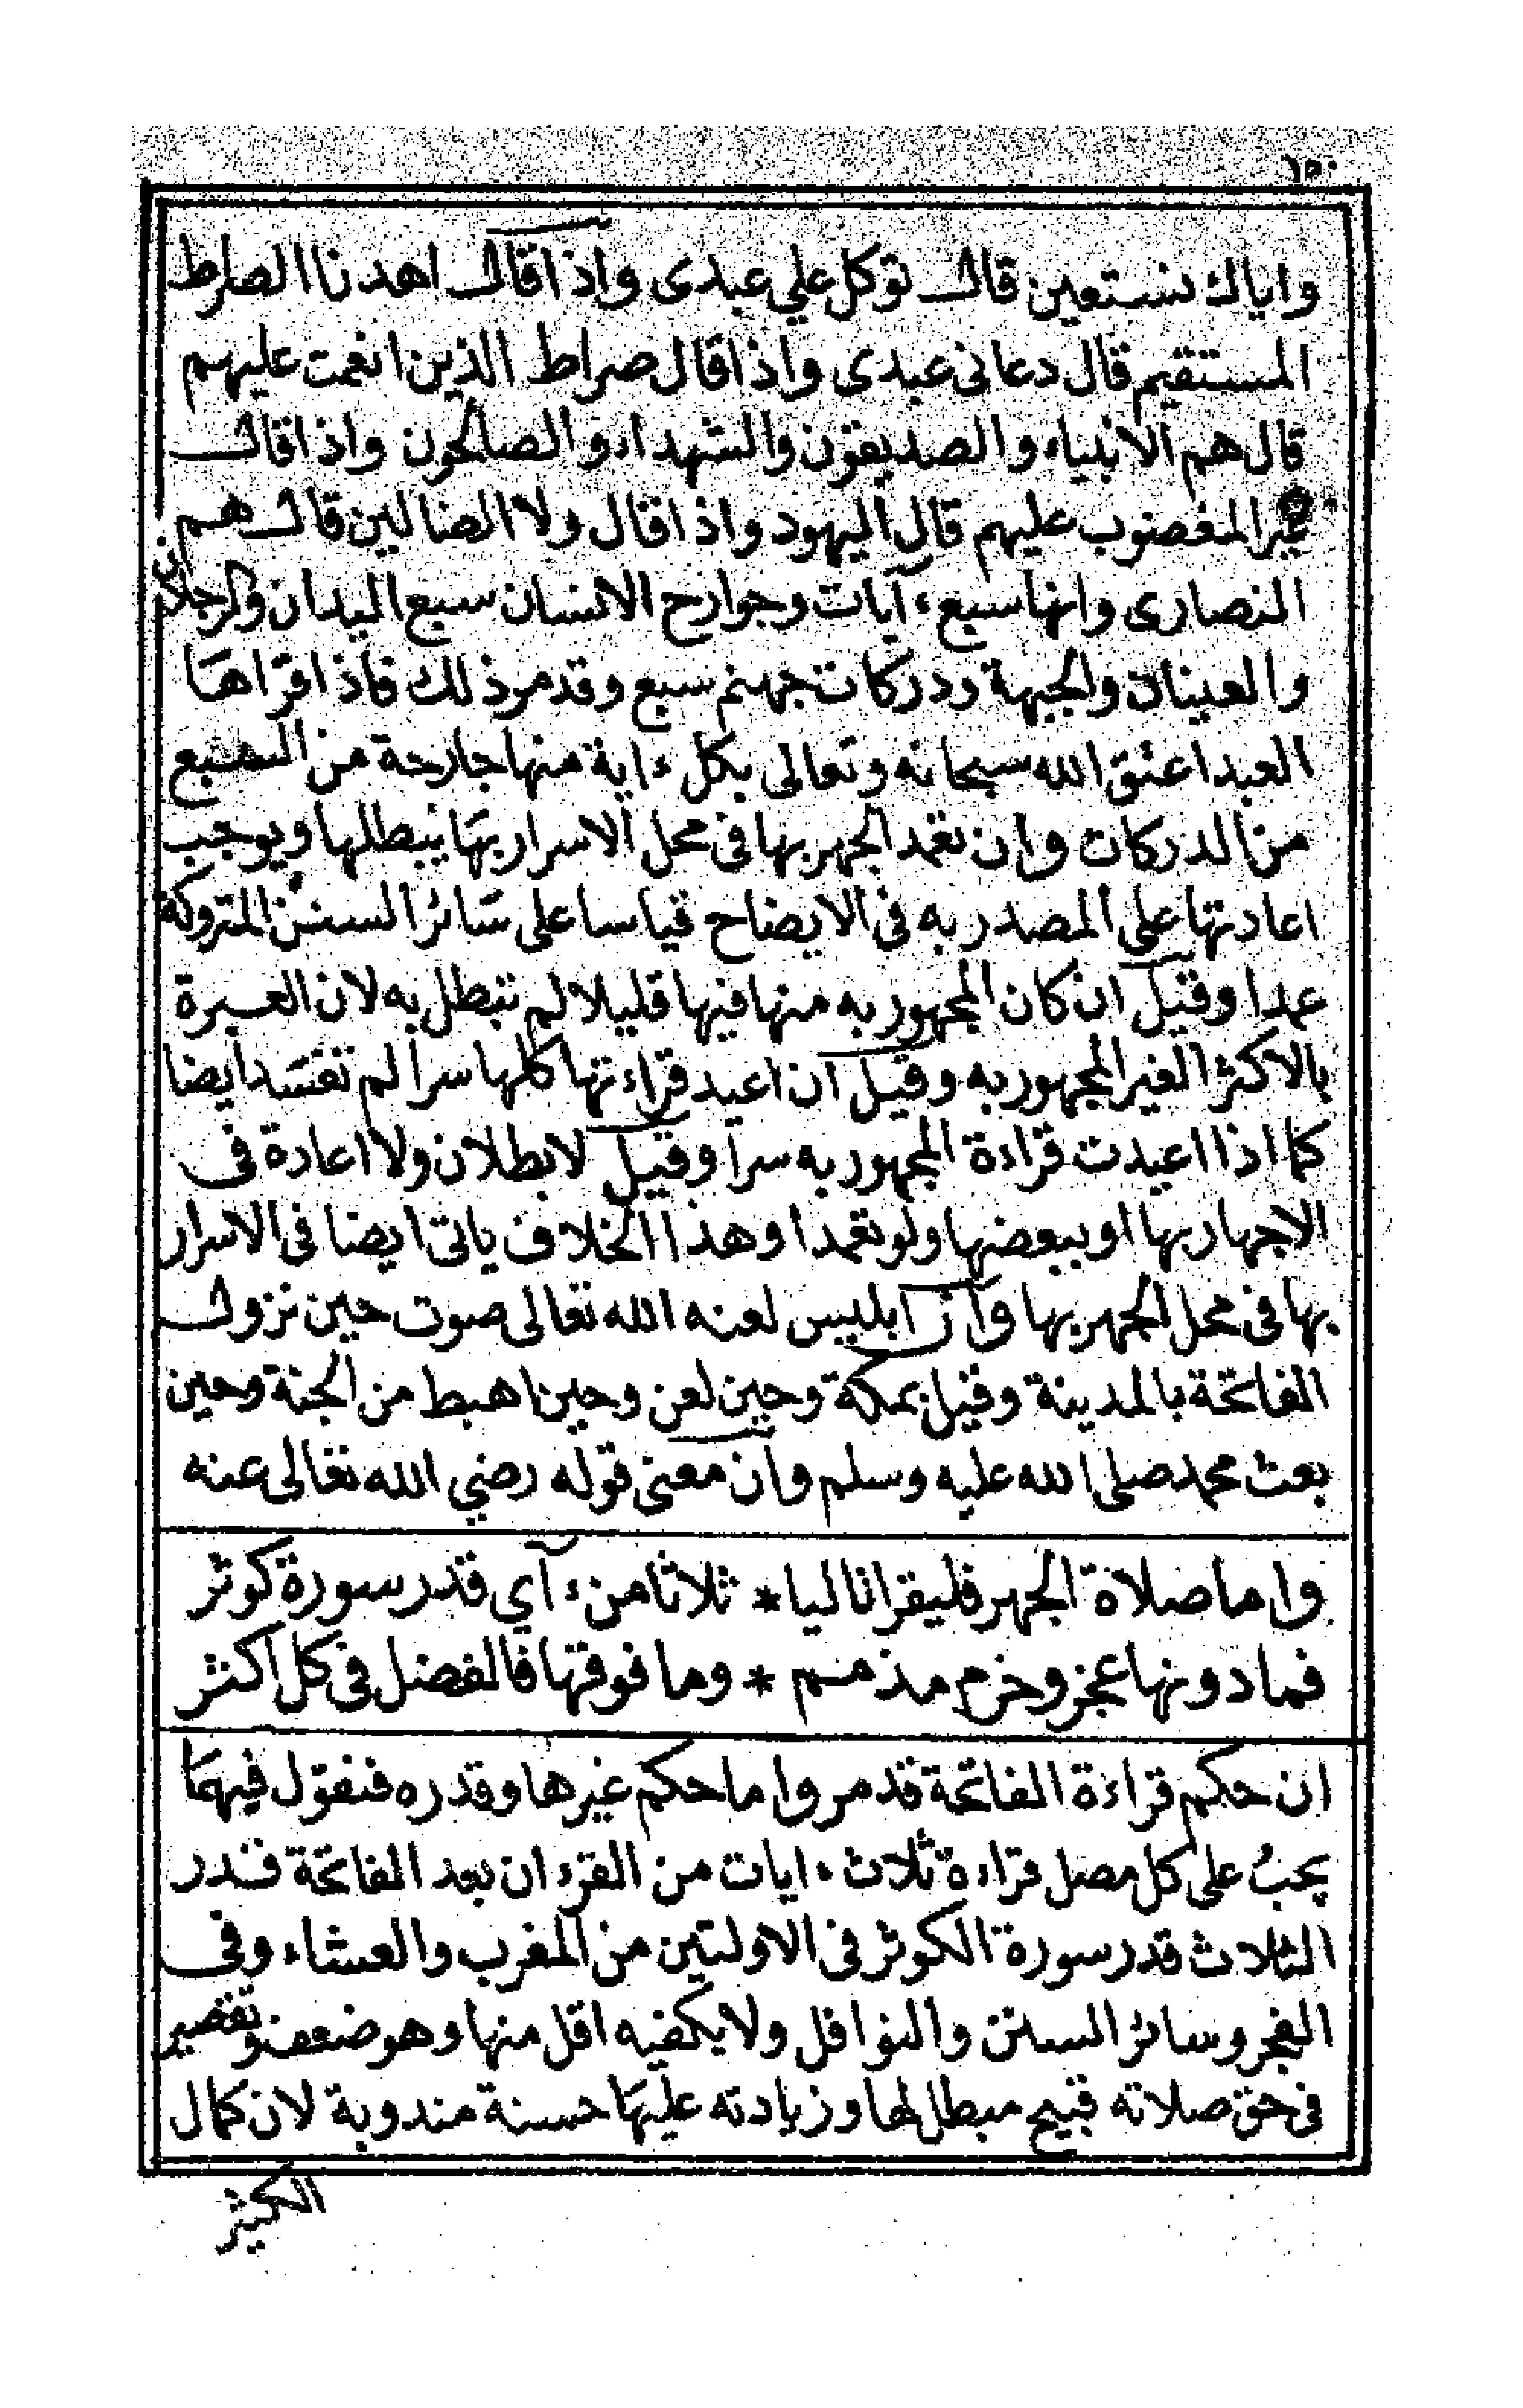 ١٥٠
واياك نستعين قال توكل علي عبدى واذا قال اهدنا الصراط
المستقيم قال دعانى عبدى واذا قال صراط الذين انعمت عليهم
قال هم الانبياء والصديقون والشهداء والصالحون واذا قال
غير المغضوب عليهم قال اليهود واذا قال ولا الضالين قال هم
النصارى وانها سبع ءآيات وجوارح الانسان سبع اليدان والرجلان
والعينان والجبهة ودركات جهنم سبع وقد مر ذلك فاذا قرأها
العبد اعتق الله سبحانه وتعالى بكل ءاية منها جارحة من السبع
من الدركات وان تعمد الجهر بها فى محل الاسرار بها يبطلها ويوجب
اعادتها على المصدر به فى الايضاح قياسا على سائر السنن المتروكة
عمدا وقيل ان كان المجهور به منها فيها قليلا لم تبطل به لان العبرة
بالاكثر الغير المجهور به وقيل ان اعيد قراءتها كلها سرا لم تفسد ايضا
كما اذا اعيدت قراءة المجهور به سرا وقيل لا بطلان ولا اعادة فى
الاجهار بها او ببعضها ولو تعمدا وهذا الخلاف ياتى ايضا فى الاسرار
بها فى محل الجهر بها وان ابليس لعنه الله تعالى صوت حين نزول
الفاتحة بالمدينة وقيل بمكة وحين لعن وحين اهبط من الجنة وحين
بعث محمد صلى الله عليه وسلم وان معنى قوله رضي الله تعالى عنه
واما صلاة الجهر فليقرا تاليا * ثلاثا من ءآي قدر سورة كوثر
فما دونها عجز وخرم مذمم * وما فوقها فالفضل فى كل اكثر
ان حكم قراءة الفاتحة قد مر واما حكم غيرها وقدره فنقول فيهما
يجب على كل مصل قراءة ثلاث ءايات من القرءان بعد الفاتحة قدر
الثلاث قدر سورة الكوثر فى الاولتين من المغرب والعشاء وفى
الفجر وسائر السنن والنوافل ولا يكفيه اقل منها وهو ضعف وتقصير
فى حق صلاته قبيح مبطل لها وزيادته عليها حسنة مندوبة لان كمال
الكثير